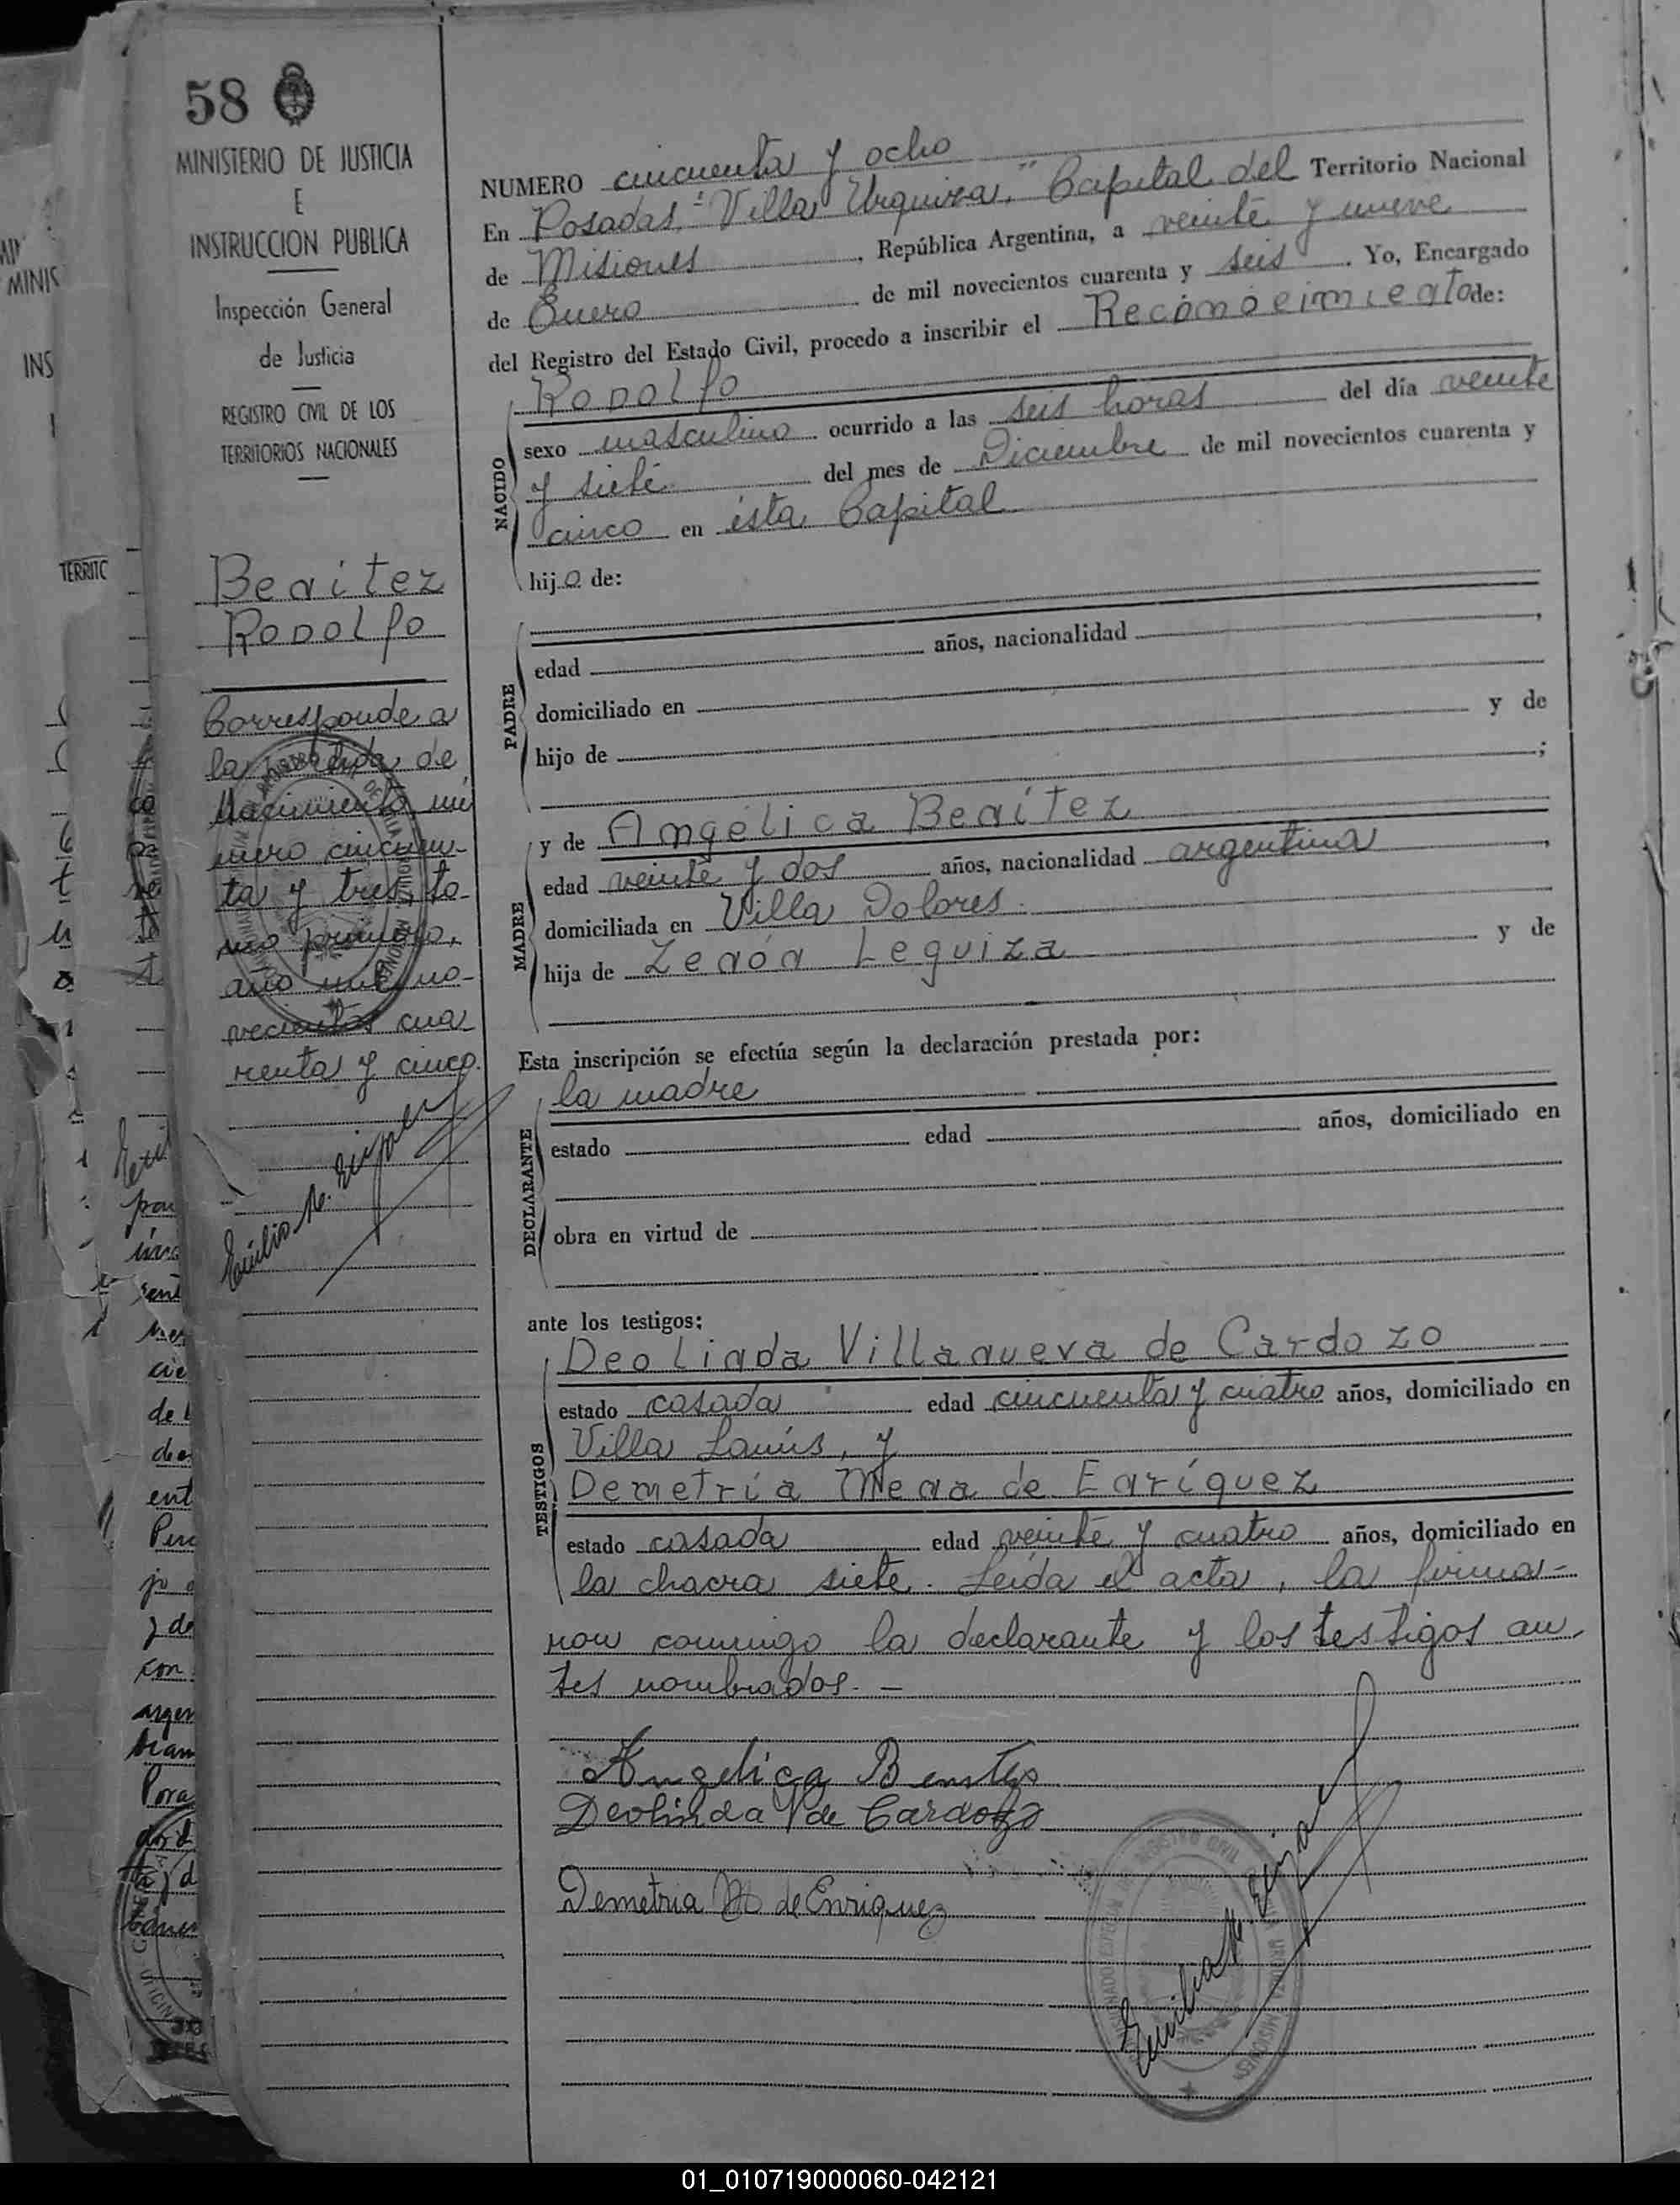 58
MINISTERIO DE JUSTICIA
E
INSTRUCCION PUBLICA
Inspección General
de Justicia
REGISTRO CIVIL DE LOS
TERRITORIOS NACIONALES
Benitez
Rodolfo
Corresponde a
la partida de
Nacimiento nú
mero cincuen-
ta y tres, to-
mo primero,
año mil no-
vecientos cua
renta y cinco.
NUMERO cincuenta y ocho
En Posadas, "Villa Urquiza," Capital del Territorio Nacional
de Misiones, República Argentina, a veinte y nueve
de Enero de mil novecientos cuarenta y seis. Yo, Encargado
del Registro del Estado Civil, procedo a inscribir el Reconocimiento de:
NACIDO
Rodolfo
sexo masculino ocurrido a las seis horas del día veinte
y siete del mes de Diciembre de mil novecientos cuarenta y
cinco en ésta Capital
hijo de:
PADRE
edad años, nacionalidad ,
domiciliado en
hijo de y de
;
MADRE
y de Angélica Benítez
edad veinte y dos años, nacionalidad argentina,
domiciliada en Villa Dolores
hija de Zenón Leguiza y de
Esta inscripción se efectúa según la declaración prestada por:
DECLARANTE
la madre
estado edad años, domiciliado en
obra en virtud de
ante los testigos:
TESTIGOS
Deolinda Villanueva de Cardozo
estado casada edad cincuenta y cuatro años, domiciliado en
Villa Lanús, y
Demetria Mena de Enríquez
estado casada edad veinte y cuatro años, domiciliado en
la chacra siete. Leída el acta, la firma-
ron conmigo la declarante y los testigos an
tes nombrados. -
Angelica Benites
Deolinda V de Cardozo
Demetria M de Enriquez
01_010719000060-042121